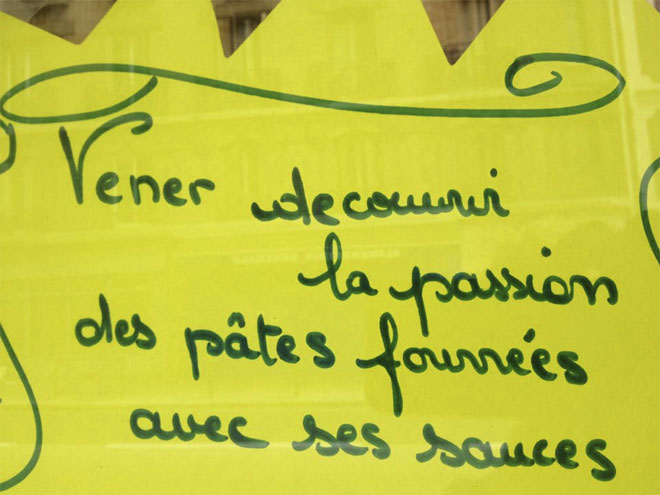 Vener decouvrir
la passion
des pâtes fourrées
avec ses sauces